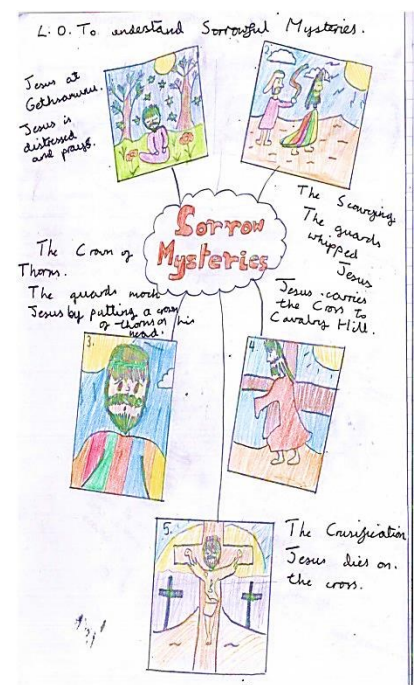 L.O. To understand Sorrowful Mysteries.
Jesus at
Jesus is
distressed
and prays.
1.
2.
The Scourging
The guards
whipped
Jesus
Sorrow
Mysteries
The Crown of
Thorns.
The guards mock
Jesus by putting a crown
of thorns on his
head.
Jesus carries
the Cross to
Cavalry Hill.
3.
4.
5.
The Crusification
Jesus dies on
the cross.